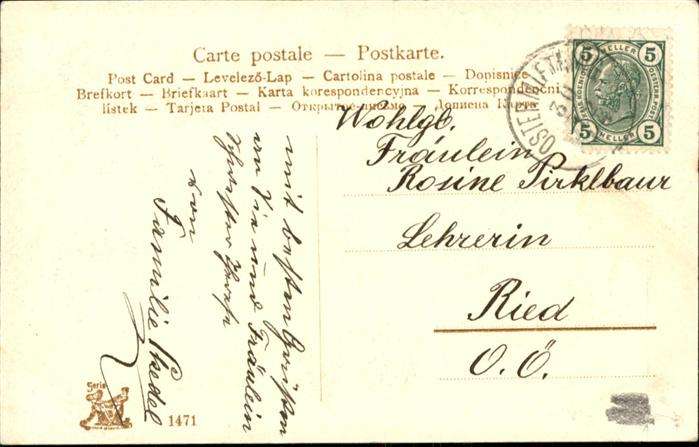 Carte postale — Postkarte.
Post Card — Levelező-Lap — Cartolina postale — Dopisnice
Brefkort — Briefkaart — Karta korespondencyjna — Korrespondenčni
listek — Tarjeta Postal — Открытое письмо — Дописна Карта
5 HELLER 5
5 HELLER 5
Wohlgb.
Fräulein
Rosine Pirklbaur
Lehrerin
Ried
O. Ö.
mit besten Grüßen
an Sie und Fräulein
Schwester
von
Familie
Serie
1471